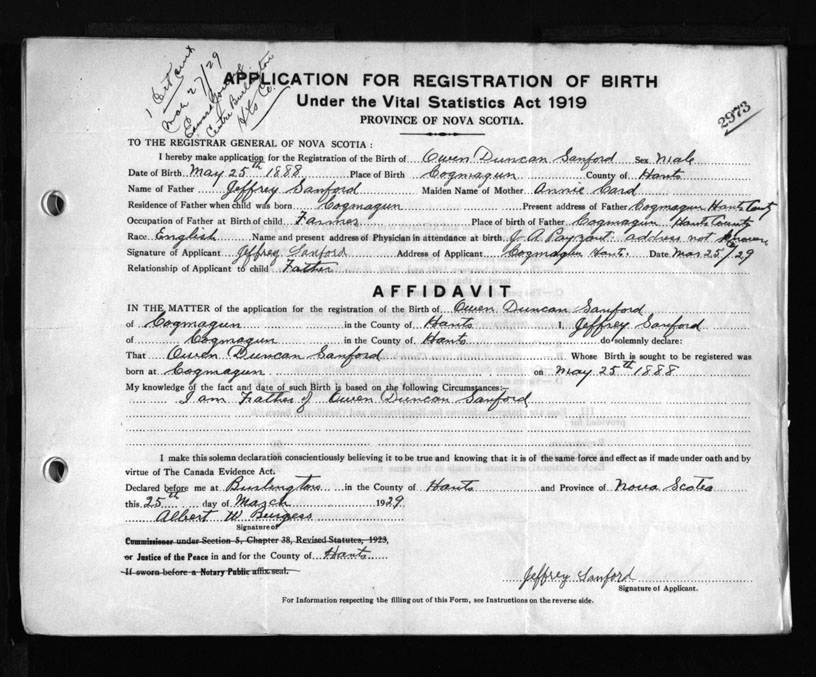 1 Cert sent
Mar 27/29
Centre Burlington
Hts Co.
APPLICATION FOR REGISTRATION OF BIRTH
Under the Vital Statistics Act 1919
PROVINCE OF NOVA SCOTIA.
2973
TO THE REGISTRAR GENERAL OF NOVA SCOTIA :
I hereby make application for the Registration of the Birth of Owen Duncan Sanford Sex Male
Date of Birth May 25th 1888 Place of Birth Cogmagun County of Hants
Name of Father Jeffrey Sanford Maiden Name of Mother Annie Card
Residence of Father when child was born Cogmagun Present address of Father Cogmagun Hants County
Occupation of Father at Birth of child Farmer Place of birth of Father Cogmagun Hants County
Race English Name and present address of Physician in attendance at birth J A Payzant address not known
Signature of Applicant Jeffrey Sanford Address of Applicant Cogmagun Hants Date Mar 25th/29
Relationship of Applicant to child Father
AFFIDAVIT
IN THE MATTER of the application for the registration of the Birth of Owen Duncan Sanford
of Cogmagun in the County of Hants I, Jeffrey Sanford
of Cogmagun in the County of Hants do solemnly declare:
That Owen Duncan Sanford Whose Birth is sought to be registered was
born at Cogmagun on May 25th 1888
My knowledge of the fact and date of such Birth is based on the following Circumstances:—
I am Father of Owen Duncan Sanford
I make this solemn declaration conscientiously believing it to be true and knowing that it is of the same force and effect as if made under oath and by
virtue of The Canada Evidence Act.
Declared before me at Burlington in the County of Hants and Province of Nova Scotia
this 25th day of March 1929
Albert W Burgess
Signature of
Commissioner under Section 5, Chapter 38, Revised Statutes, 1923,
or Justice of the Peace in and for the County of Hants
If sworn before a Notary Public affix seal.
Jeffrey Sanford
Signature of Applicant.
For Information respecting the filling out of this Form, see Instructions on the reverse side.